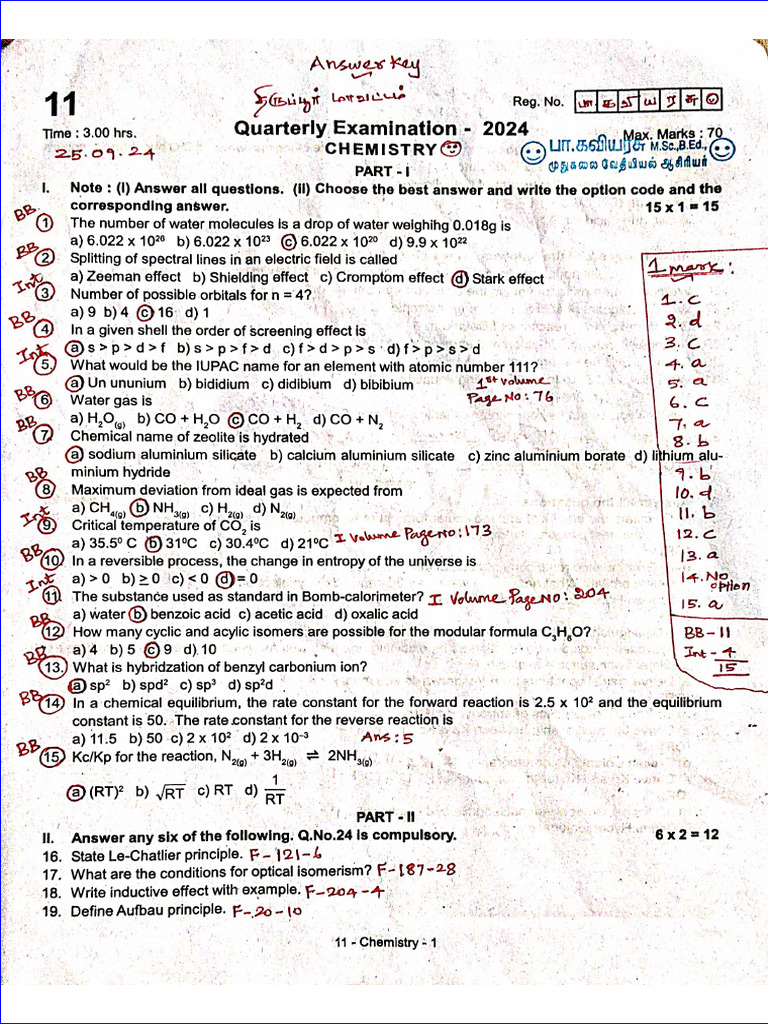 Answer Key
திருப்பூர் மாவட்டம்
11
Reg. No. பா க வி ய ர சு
Time : 3.00 hrs.
Quarterly Examination - 2024
Max. Marks : 70
25.09.24
CHEMISTRY
பா.கவியரசு M.Sc.,B.Ed.,
முதுகலை வேதியியல் ஆசிரியர்
PART - I
I. Note : (i) Answer all questions. (ii) Choose the best answer and write the option code and the
corresponding answer. 15 x 1 = 15
BB 1 The number of water molecules is a drop of water weighihg 0.018g is
a) 6.022 x 10²⁶ b) 6.022 x 10²³ c) 6.022 x 10²⁰ d) 9.9 x 10²²
BB 2 Splitting of spectral lines in an electric field is called
a) Zeeman effect b) Shielding effect c) Cromptom effect d) Stark effect
Int 3 Number of possible orbitals for n = 4?
a) 9 b) 4 c) 16 d) 1
BB 4 In a given shell the order of screening effect is
a) s > p > d > f b) s > p > f > d c) f > d > p > s d) f > p > s > d
Int 5. What would be the IUPAC name for an element with atomic number 111?
a) Un ununium b) bididium c) didibium d) bibibium 1st volume
Page No : 76
BB 6 Water gas is
a) H₂O(g) b) CO + H₂O c) CO + H₂ d) CO + N₂
BB 7. Chemical name of zeolite is hydrated
a) sodium aluminium silicate b) calcium aluminium silicate c) zinc aluminium borate d) lithium alu-
minium hydride
BB 8 Maximum deviation from ideal gas is expected from
a) CH₄(g) b) NH₃(g) c) H₂(g) d) N₂(g)
Int 9. Critical temperature of CO₂ is
a) 35.5⁰ C b) 31⁰C c) 30.4⁰C d) 21⁰C I Volume Page No : 173
BB 10. In a reversible process, the change in entropy of the universe is
a) > 0 b) ≥ 0 c) < 0 d) = 0
Int 11. The substance used as standard in Bomb-calorimeter? I Volume Page NO : 204
a) water b) benzoic acid c) acetic acid d) oxalic acid
BB 12 How many cyclic and acylic isomers are possible for the modular formula C₃H₆O?
a) 4 b) 5 c) 9 d) 10
BB 13. What is hybridzation of benzyl carbonium ion?
a) sp² b) spd² c) sp³ d) sp²d
BB 14 In a chemical equilibrium, the rate constant for the forward reaction is 2.5 x 10² and the equilibrium
constant is 50. The rate constant for the reverse reaction is
a) 11.5 b) 50 c) 2 x 10² d) 2 x 10⁻³ Ans : 5
BB 15. Kc/Kp for the reaction, N₂(g) + 3H₂(g) ⇌ 2NH₃(g)
a) (RT)² b) √RT c) RT d) 1/RT
1 mark :
1. c
2. d
3. c
4. a
5. a
6. c
7. a
8. b
9. b
10. d
11. b
12. c
13. a
14. No option
15. a
BB - 11
Int - 4
15
PART - II
II. Answer any six of the following. Q.No.24 is compulsory. 6 x 2 = 12
16. State Le-Chatlier principle. F-121-6
17. What are the conditions for optical isomerism? F-187-28
18. Write inductive effect with example. F-204-4
19. Define Aufbau principle. F-20-10
11 - Chemistry - 1